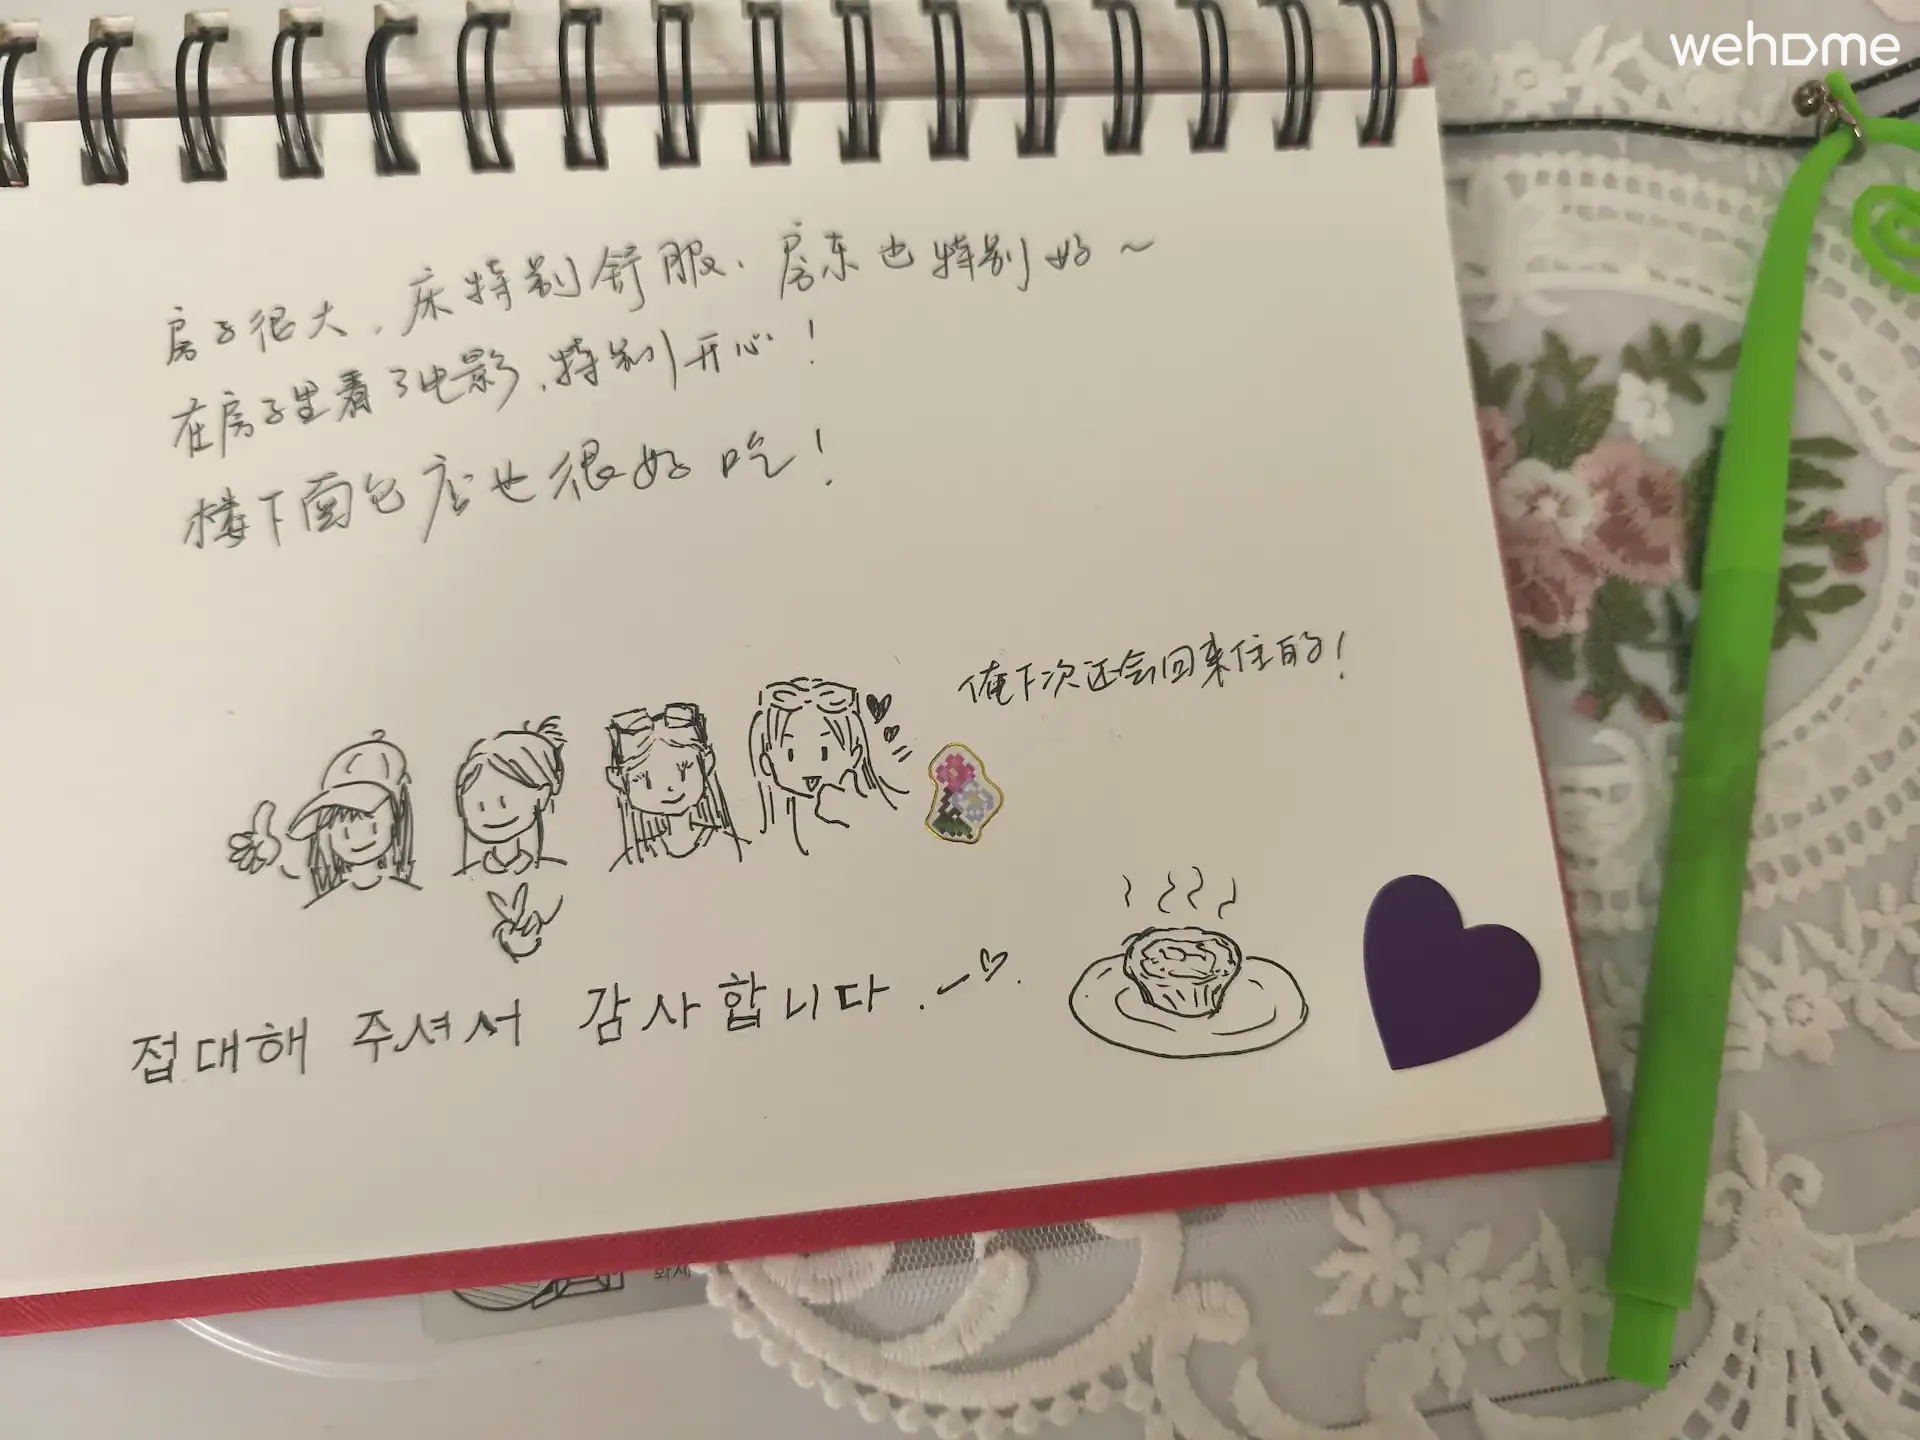 wehome
房子很大，床特别舒服．房东也特别好～
在房子里看了电影，特别开心！
楼下面包店也很好吃！
俺下次还会回来住的！
접대해 주셔서 감사합니다.
화재